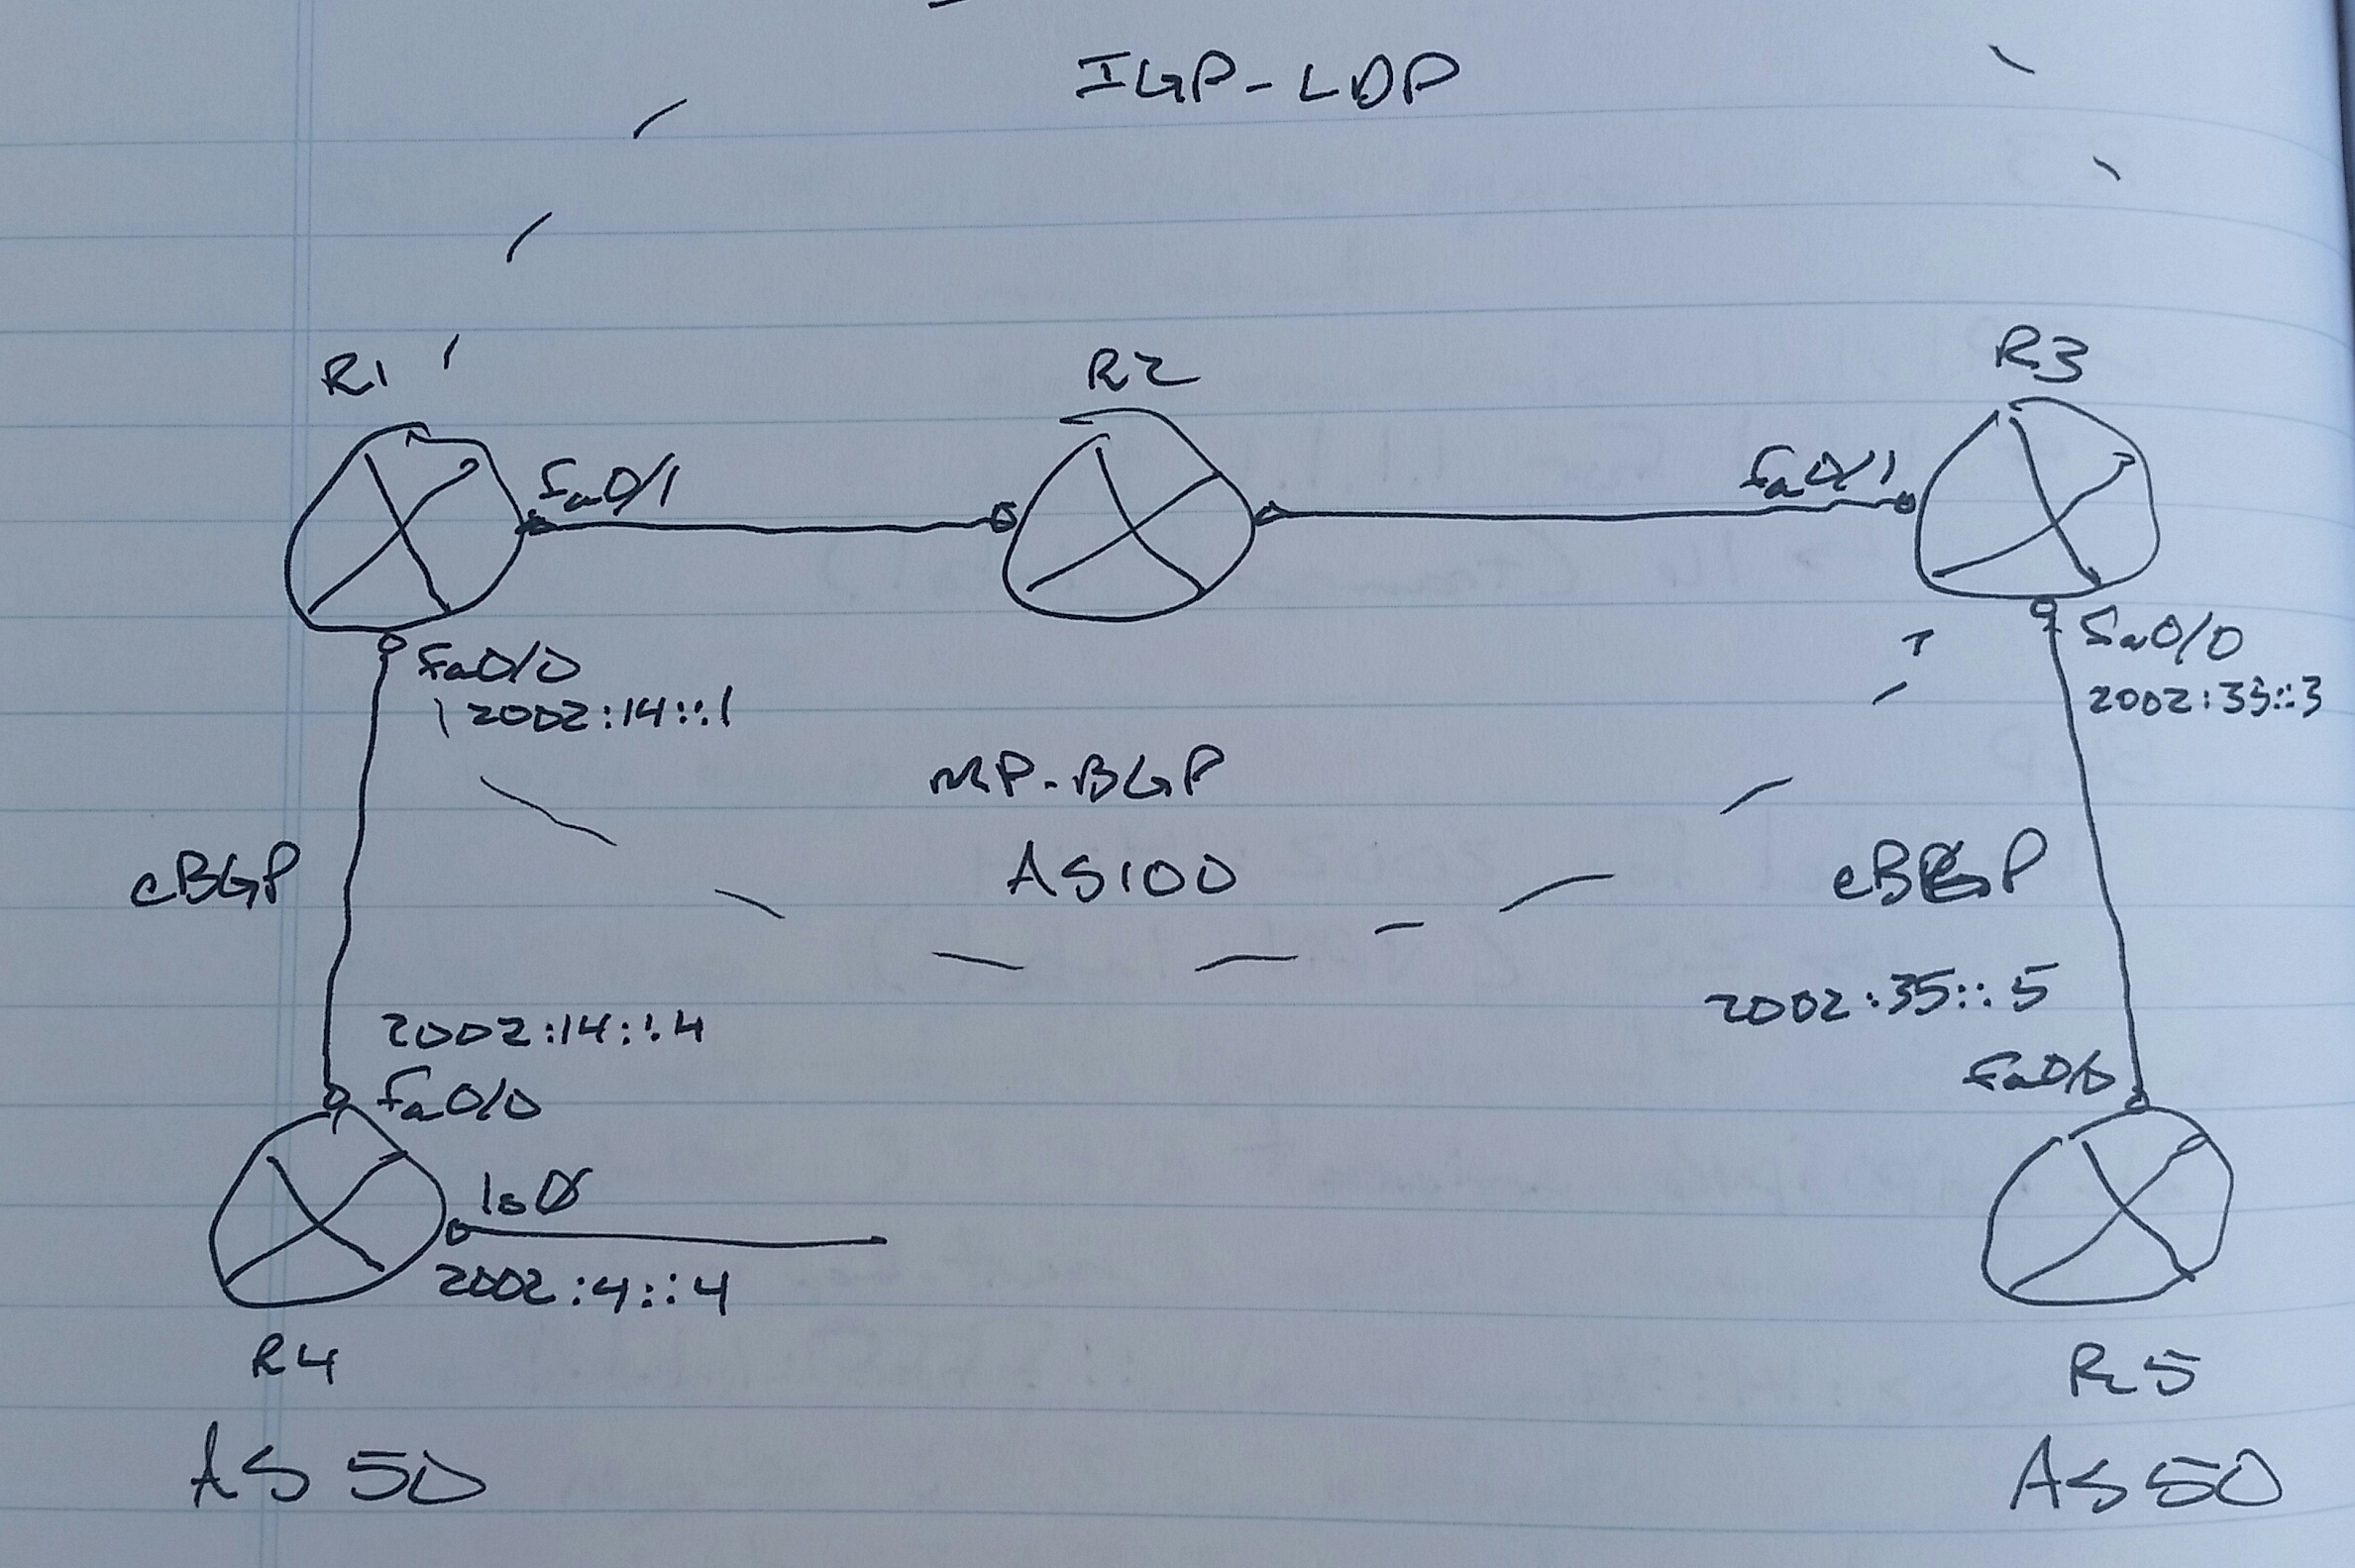 IGP-LDP
R1
R2
R3
fa0/1
fa0/1
fa0/0
2002:14::1
fa0/0
2002:35::3
MP-BGP
AS100
eBGP
eBGP
2002:14::4
2002:35::5
fa0/0
fa0/0
lo0
2002:4::4
R4
R5
AS 50
AS 50